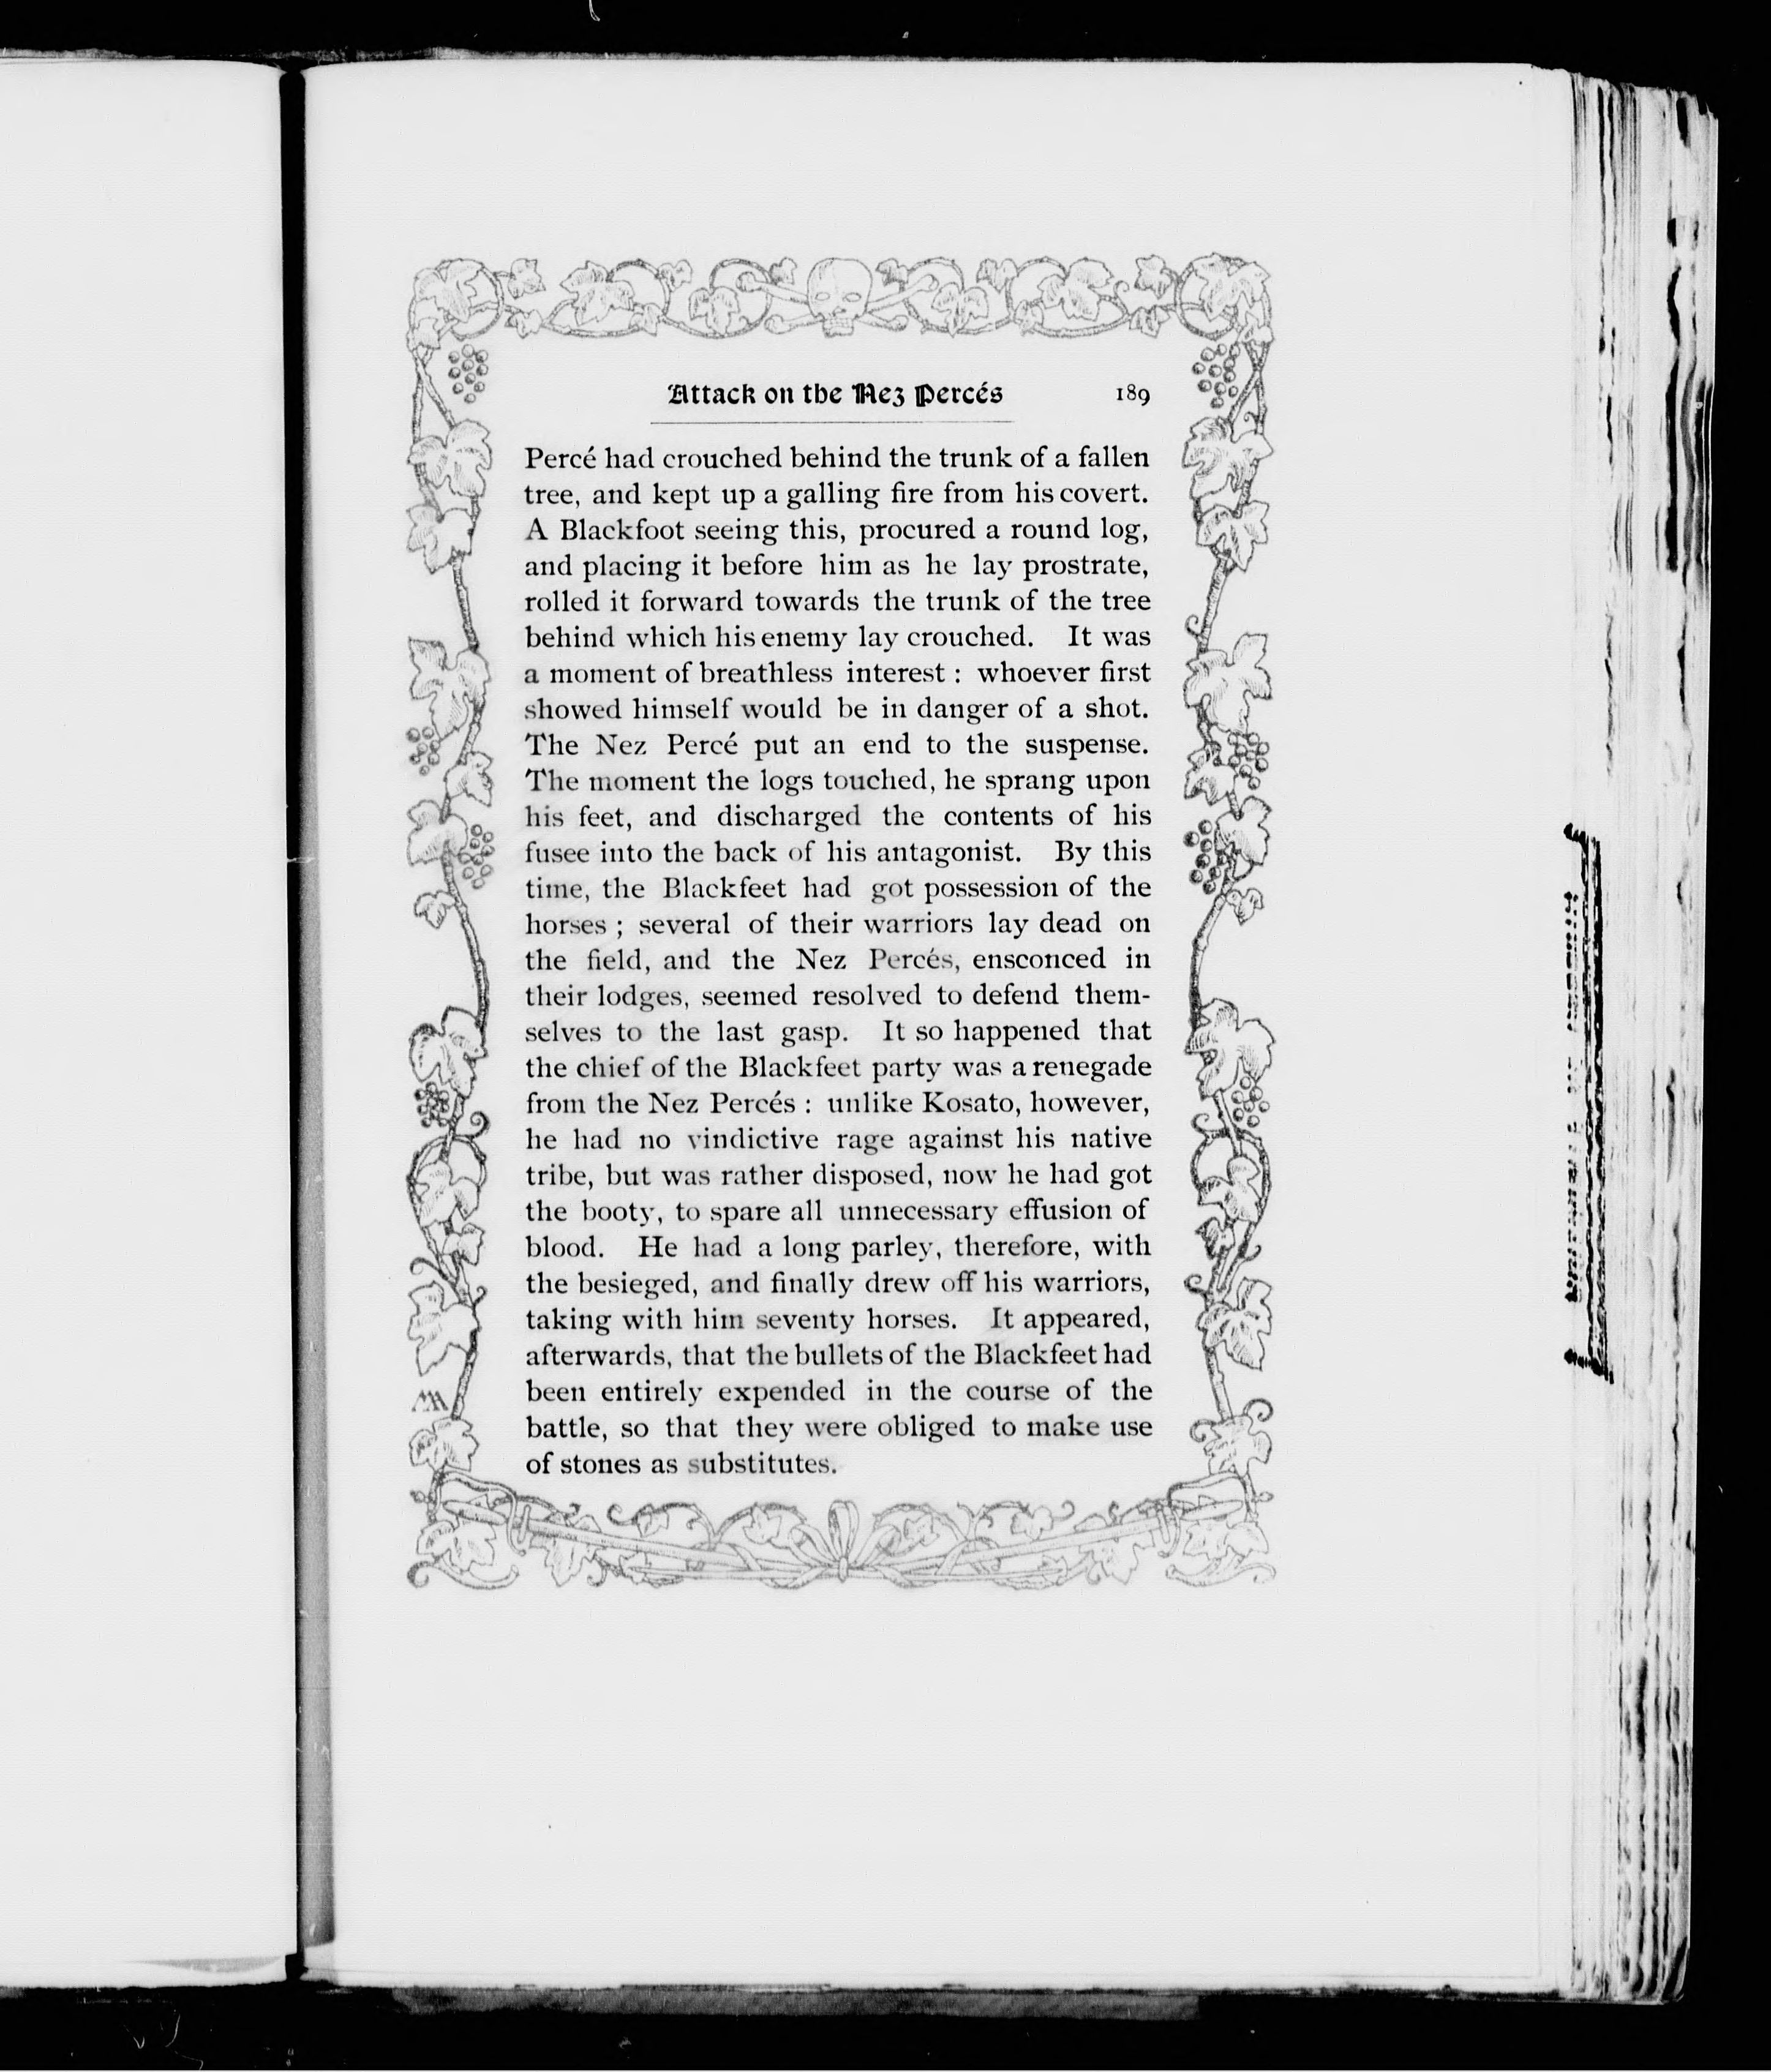 Attack on the Nez Percés 189
Percé had crouched behind the trunk of a fallen
tree, and kept up a galling fire from his covert.
A Blackfoot seeing this, procured a round log,
and placing it before him as he lay prostrate,
rolled it forward towards the trunk of the tree
behind which his enemy lay crouched. It was
a moment of breathless interest : whoever first
showed himself would be in danger of a shot.
The Nez Percé put an end to the suspense.
The moment the logs touched, he sprang upon
his feet, and discharged the contents of his
fusee into the back of his antagonist. By this
time, the Blackfeet had got possession of the
horses ; several of their warriors lay dead on
the field, and the Nez Percés, ensconced in
their lodges, seemed resolved to defend them-
selves to the last gasp. It so happened that
the chief of the Blackfeet party was a renegade
from the Nez Percés : unlike Kosato, however,
he had no vindictive rage against his native
tribe, but was rather disposed, now he had got
the booty, to spare all unnecessary effusion of
blood. He had a long parley, therefore, with
the besieged, and finally drew off his warriors,
taking with him seventy horses. It appeared,
afterwards, that the bullets of the Blackfeet had
been entirely expended in the course of the
battle, so that they were obliged to make use
of stones as substitutes.